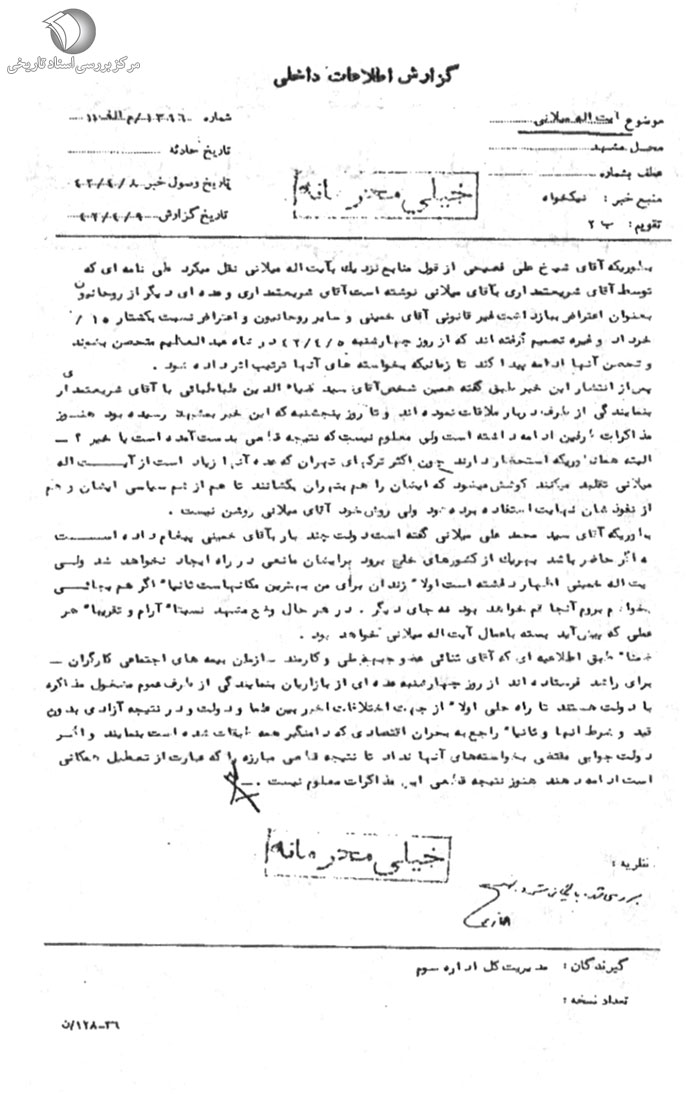 مرکز بررسی اسناد تاریخی
گزارش اطلاعات داخلی
موضوع آیت اله میلانی
شماره ۱۳۱۶۰/م الف ۱۱
محل مشهد
تاریخ حادثه
عطف بشماره
تاریخ وصول خبر ۴۲/۴/۸
منبع خبر : نیکخواه
تاریخ گزارش ۴۲/۴/۹
تقویم : ب ۲
خیلی محرمانه
بطوریکه آقای شیخ علی فصیحی از قول منابع نزدیک بآیت اله میلانی نقل میکرد طی نامه ای که
توسط آقای شریعتمداری بآقای میلانی نوشته است آقای شریعتمداری و عده ای دیگر از روحانیون
بعنوان اعتراض ببازداشت غیر قانونی آقای خمینی و سایر روحانیون و اعتراض نسبت بکشتار ۱۵ /
خرداد و غیره تصمیم گرفته اند که از روز چهارشنبه ۴۲/۴/۵ در شاه عبدالعظیم متحصن بشوند
و تحصن آنها ادامه پیدا کند تا زمانیکه بخواسته های آنها ترتیب اثر داده شود .
پس از انتشار این خبر طبق گفته همین شخص آقای سید ضیاء الدین طباطبائی با آقای شریعتمداری
بنمایندگی از طرف دربار ملاقات نموده اند و تا روز پنجشنبه که این خبر بمشهد رسیده بود هنوز
مذاکرات طرفین ادامه داشته است ولی معلوم نیست که نتیجه قطعی بدست آمده است یا خیر ۲ –
البته همانطوریکه استحضار دارند چون اکثر ترکهای تهران که عده آنها زیاد است از آیت اله
میلانی تقلید میکنند کوشش میشود که ایشان را هم بتهران بکشانند تا هم از شم سیاسی ایشان و هم
از نفوذشان نهایت استفاده برده شود ولی روش خود آقای میلانی روشن نیست .
بطوریکه آقای سید محمد علی میلانی گفته است دولت چند بار بآقای خمینی پیغام داده است
که اگر حاضر باشد بهریک از کشورهای خارج برود برایشان مانعی در راه ایجاد نخواهد شد ولی
آیت اله خمینی اظهار داشته است اولا" زندان برای من بهترین مکانهاست ثانیا" اگر هم بجائی
بخواهم بروم آنجا قم خواهد بود نه جای دیگر . در هر حال وضع مشهد نسبتا" آرام و تقریبا" هر
عملی که پیش آید بسته باعمال آیت اله میلانی خواهد بود .
ضمنا" طبق اطلاعیه ای که آقای ثنائی عضو جبهه ملی و کارمند سازمان بیمه های اجتماعی کارگران –
برای راشد فرستاده اند از روز چهارشنبه عده ای از بازاریان بنمایندگی از طرف عموم مشغول مذاکره
با دولت هستند تا راه حلی اولا" از جهت اختلافات اخیر بین علما و دولت و در نتیجه آزادی بدون
قید و شرط آنها و ثانیا" راجع به بحران اقتصادی که دامنگیر همه طبقات شده است بنمایند و اگر
دولت جوابی مقتضی بخواسته‌های آنها نداد تا نتیجه قطعی مبارزه را که عبارت از تعطیل همگانی
است ادامه دهند هنوز نتیجه قطعی این مذاکرات معلوم نیست . –
خیلی محرمانه
نظریه :
بررسی شد
گیرندگان : مدیریت کل اداره سوم
تعداد نسخه :
۳۶–۱۲۸/ن